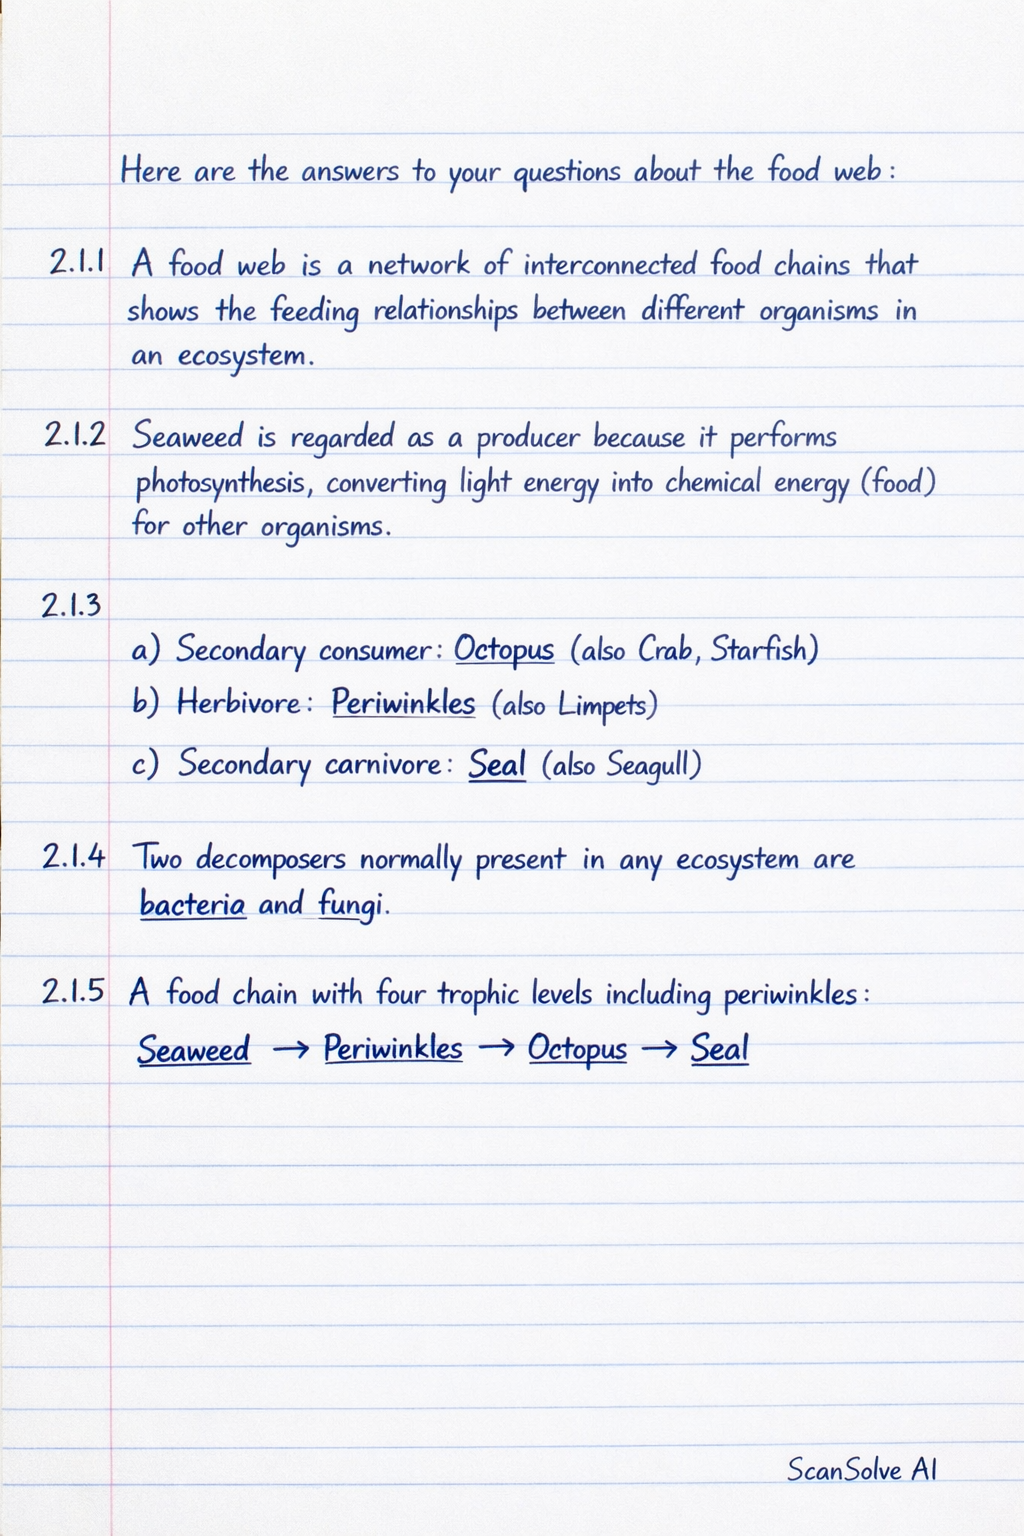 Here are the answers to your questions about the food web:
2.1.1 A food web is a network of interconnected food chains that
shows the feeding relationships between different organisms in
an ecosystem.
2.1.2 Seaweed is regarded as a producer because it performs
photosynthesis, converting light energy into chemical energy (food)
for other organisms.
2.1.3
a) Secondary consumer: Octopus (also Crab, Starfish)
b) Herbivore: Periwinkles (also Limpets)
c) Secondary carnivore: Seal (also Seagull)
2.1.4 Two decomposers normally present in any ecosystem are
bacteria and fungi.
2.1.5 A food chain with four trophic levels including periwinkles:
Seaweed → Periwinkles → Octopus → Seal
ScanSolve AI